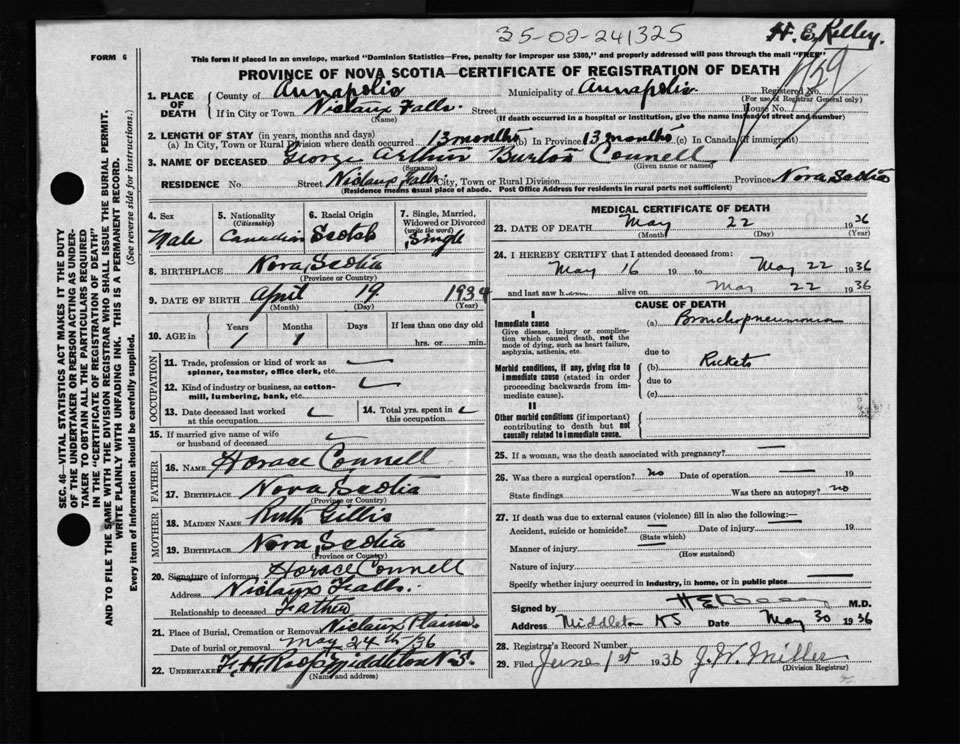 35-02-241325
H. E. Kelley.
FORM 6
This form if placed in an envelope, marked "Dominion Statistics—Free, penalty for improper use $300," and properly addressed will pass through the mail "FREE"
PROVINCE OF NOVA SCOTIA—CERTIFICATE OF REGISTRATION OF DEATH
759
1. PLACE OF DEATH County of Annapolis Municipality of Annapolis Registered No.
(For use of Registrar General only)
If in City or Town Niclaux Falls. Street House No.
(Name) (If death occurred in a hospital or institution, give the name instead of street and number)
2. LENGTH OF STAY (in years, months and days)
(a) In City, Town or Rural Division where death occurred 13 months (b) In Province 13 months (c) In Canada (if immigrant)
3. NAME OF DECEASED George Arthur Burton Connell
(Surname) (Given name or names)
RESIDENCE No. Street Niclaux Falls City, Town or Rural Division Province Nova Scotia
(Residence means usual place of abode. Post Office Address for residents in rural parts not sufficient)
4. Sex Male
5. Nationality (Citizenship) Canadian
6. Racial Origin Scotch
7. Single, Married, Widowed or Divorced (write the word) Single
8. BIRTHPLACE Nova Scotia
(Province or Country)
9. DATE OF BIRTH April 19 1934
(Month) (Day) (Year)
10. AGE in Years Months Days If less than one day old
1 1 hrs. or min.
OCCUPATION
11. Trade, profession or kind of work as spinner, teamster, office clerk, etc.
12. Kind of industry or business, as cotton-mill, lumbering, bank, etc.
13. Date deceased last worked at this occupation
14. Total yrs. spent in this occupation
15. If married give name of wife or husband of deceased
FATHER
16. NAME Horace Connell
17. BIRTHPLACE Nova Scotia
(Province or Country)
MOTHER
18. MAIDEN NAME Ruth Gillis
19. BIRTHPLACE Nova Scotia
(Province or Country)
20. Signature of informant Horace Connell
Address Niclaux Falls.
Relationship to deceased Father
21. Place of Burial, Cremation or Removal Niclaux Plains.
Date of burial or removal May 24th/36
22. UNDERTAKER F. H. Roop Middleton N.S.
(Name and address)
MEDICAL CERTIFICATE OF DEATH
23. DATE OF DEATH May 22 1936
(Month) (Day) (Year)
24. I HEREBY CERTIFY that I attended deceased from:
May 16 19 to May 22 1936
and last saw him alive on May 22 1936
CAUSE OF DEATH
I
Immediate cause (a) Bronchopneumonia
Give disease, injury or complication which caused death, not the mode of dying, such as heart failure, asphyxia, asthenia, etc.
due to
Morbid conditions, if any, giving rise to immediate cause (stated in order proceeding backwards from immediate cause).
(b) Rickets
due to
(c)
II
Other morbid conditions (if important) contributing to death but not causally related to immediate cause.
25. If a woman, was the death associated with pregnancy? —
26. Was there a surgical operation? no Date of operation — 19
State findings Was there an autopsy? no
27. If death was due to external causes (violence) fill in also the following:—
Accident, suicide or homicide? — Date of injury — 19
(State which)
Manner of injury —
(How sustained)
Nature of injury —
Specify whether injury occurred in industry, in home, or in public place —
Signed by H E Kelley M.D.
Address Middleton NS Date May 30 1936
28. Registrar's Record No.
29. Filed June 1st 1936 J. W. Miller
(Division Registrar)
SEC. 46—VITAL STATISTICS ACT MAKES IT THE DUTY OF THE UNDERTAKER OR PERSON ACTING AS UNDERTAKER TO OBTAIN ALL THE PARTICULARS REQUIRED IN THE "CERTIFICATE OF REGISTRATION OF DEATH" AND TO FILE THE SAME WITH THE DIVISION REGISTRAR WHO SHALL ISSUE THE BURIAL PERMIT.
WRITE PLAINLY WITH UNFADING INK. THIS IS A PERMANENT RECORD.
Every item of information should be carefully supplied. (See reverse side for instructions.)